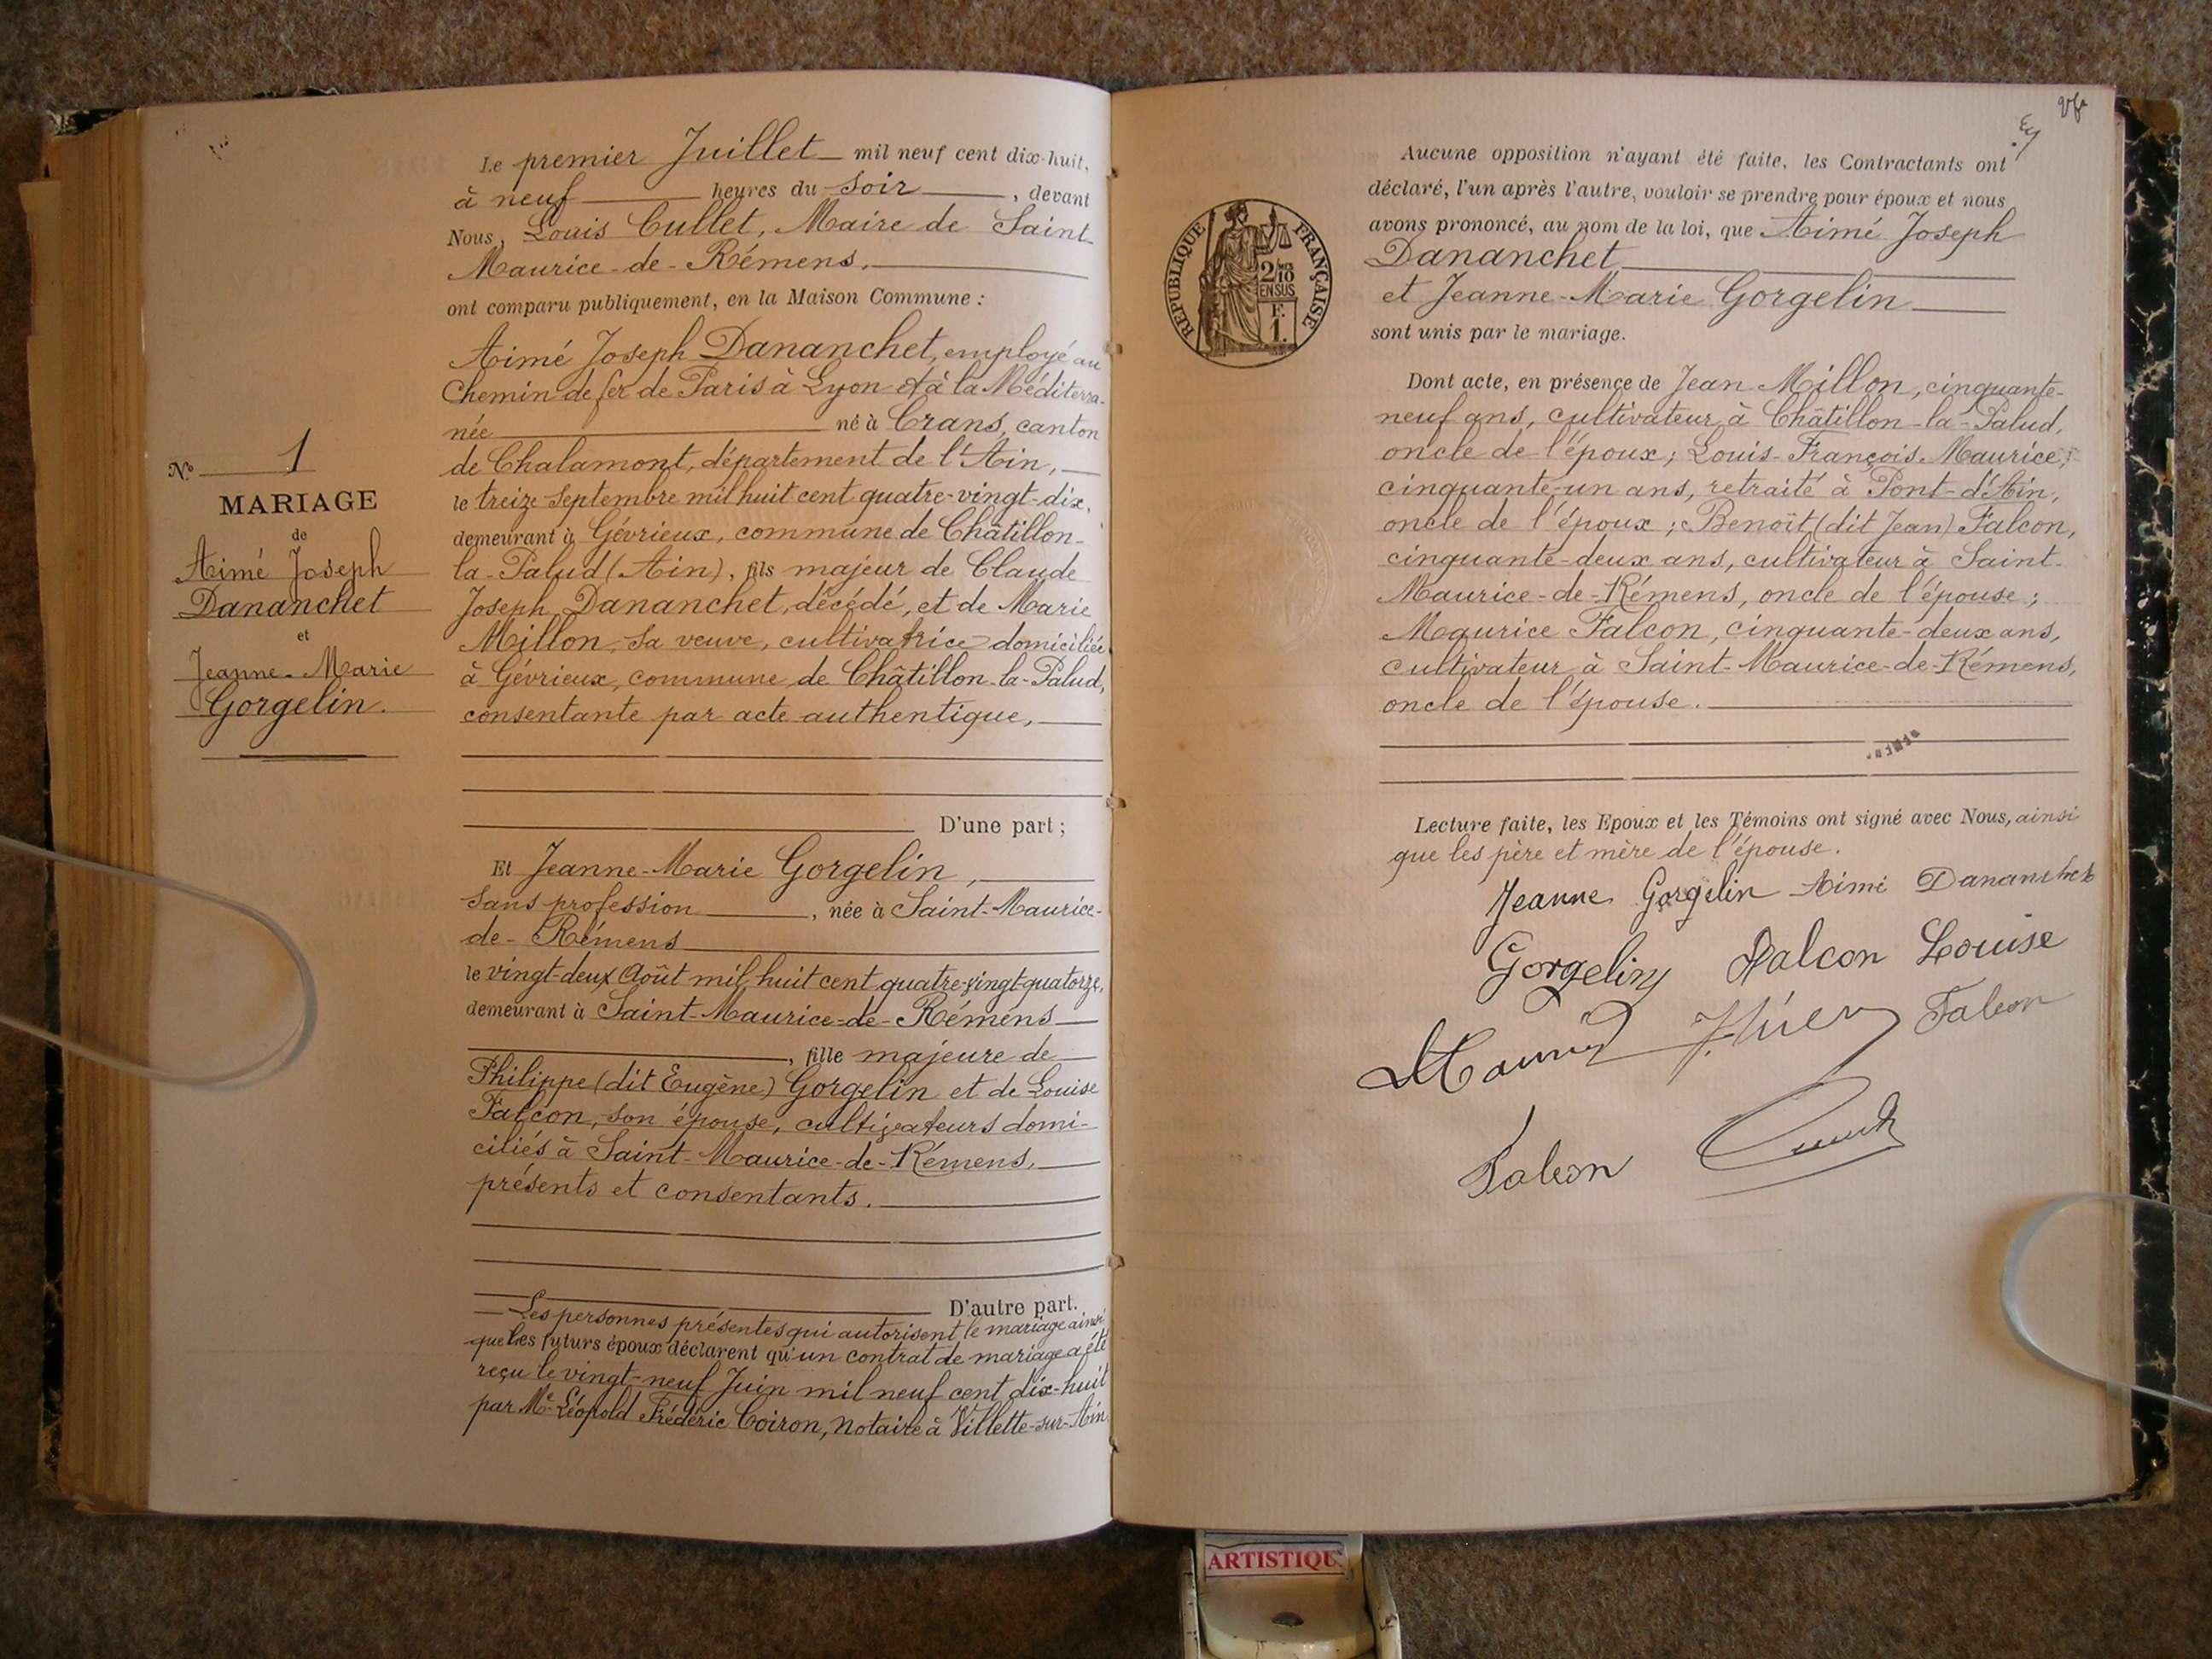 Le premier Juillet mil neuf cent dix-huit,
à neuf heures du soir, devant
Nous, Louis Cullet, Maire de Saint-
Maurice-de-Rémens,
ont comparu publiquement, en la Maison Commune :
Aimé Joseph Dananchet, employé au
Chemin de fer de Paris à Lyon et à la Méditerra-
née né à Crans, canton
de Chalamont, département de l'Ain,
le treize Septembre mil huit cent quatre-vingt-dix,
demeurant à Gévrieux, commune de Châtillon-
la-Palud (Ain), fils majeur de Claude
Joseph Dananchet, décédé, et de Marie
Millon, sa veuve, cultivatrice domiciliée
à Gévrieux, commune de Châtillon-la-Palud,
consentante par acte authentique,
D'une part ;
Et Jeanne-Marie Gorgelin,
sans profession, née à Saint-Maurice-
de-Rémens
le vingt-deux Août mil huit cent quatre-vingt-quatorze,
demeurant à Saint-Maurice-de-Rémens
, fille majeure de
Philippe (dit Eugène) Gorgelin et de Louise
Falcon, son épouse, cultivateurs domi-
ciliés à Saint-Maurice-de-Rémens,
présents et consentants.
D'autre part.
Les personnes présentes qui autorisent le mariage ainsi
que les futurs époux déclarent qu'un contrat de mariage a été
reçu le vingt-neuf Juin mil neuf cent dix-huit
par Me Léopold Frédéric Coiron, notaire à Villette-sur-Ain
N° 1
MARIAGE
de
Aimé Joseph
Dananchet
et
Jeanne-Marie
Gorgelin.
RÉPUBLIQUE FRANÇAISE
2/10
EN SUS
F.
1.
Aucune opposition n'ayant été faite, les Contractants ont
déclaré, l'un après l'autre, vouloir se prendre pour époux et nous
avons prononcé, au nom de la loi, que Aimé Joseph
Dananchet
et Jeanne-Marie Gorgelin
sont unis par le mariage.
Dont acte, en présence de Jean Millon, cinquante-
neuf ans, cultivateur à Châtillon-la-Palud,
oncle de l'époux ; Louis-François-Maurice,
cinquante-un ans, retraité à Pont-d'Ain,
oncle de l'époux ; Benoît (dit Jean) Falcon,
cinquante-deux ans, cultivateur à Saint-
Maurice-de-Rémens, oncle de l'épouse ;
Maurice Falcon, cinquante-deux ans,
cultivateur à Saint-Maurice-de-Rémens,
oncle de l'épouse.
Lecture faite, les Epoux et les Témoins ont signé avec Nous, ainsi
que les père et mère de l'épouse.
Jeanne Gorgelin Aimé Dananchet
Gorgelin Falcon Louise
Falcon
Falcon
ARTISTIQU